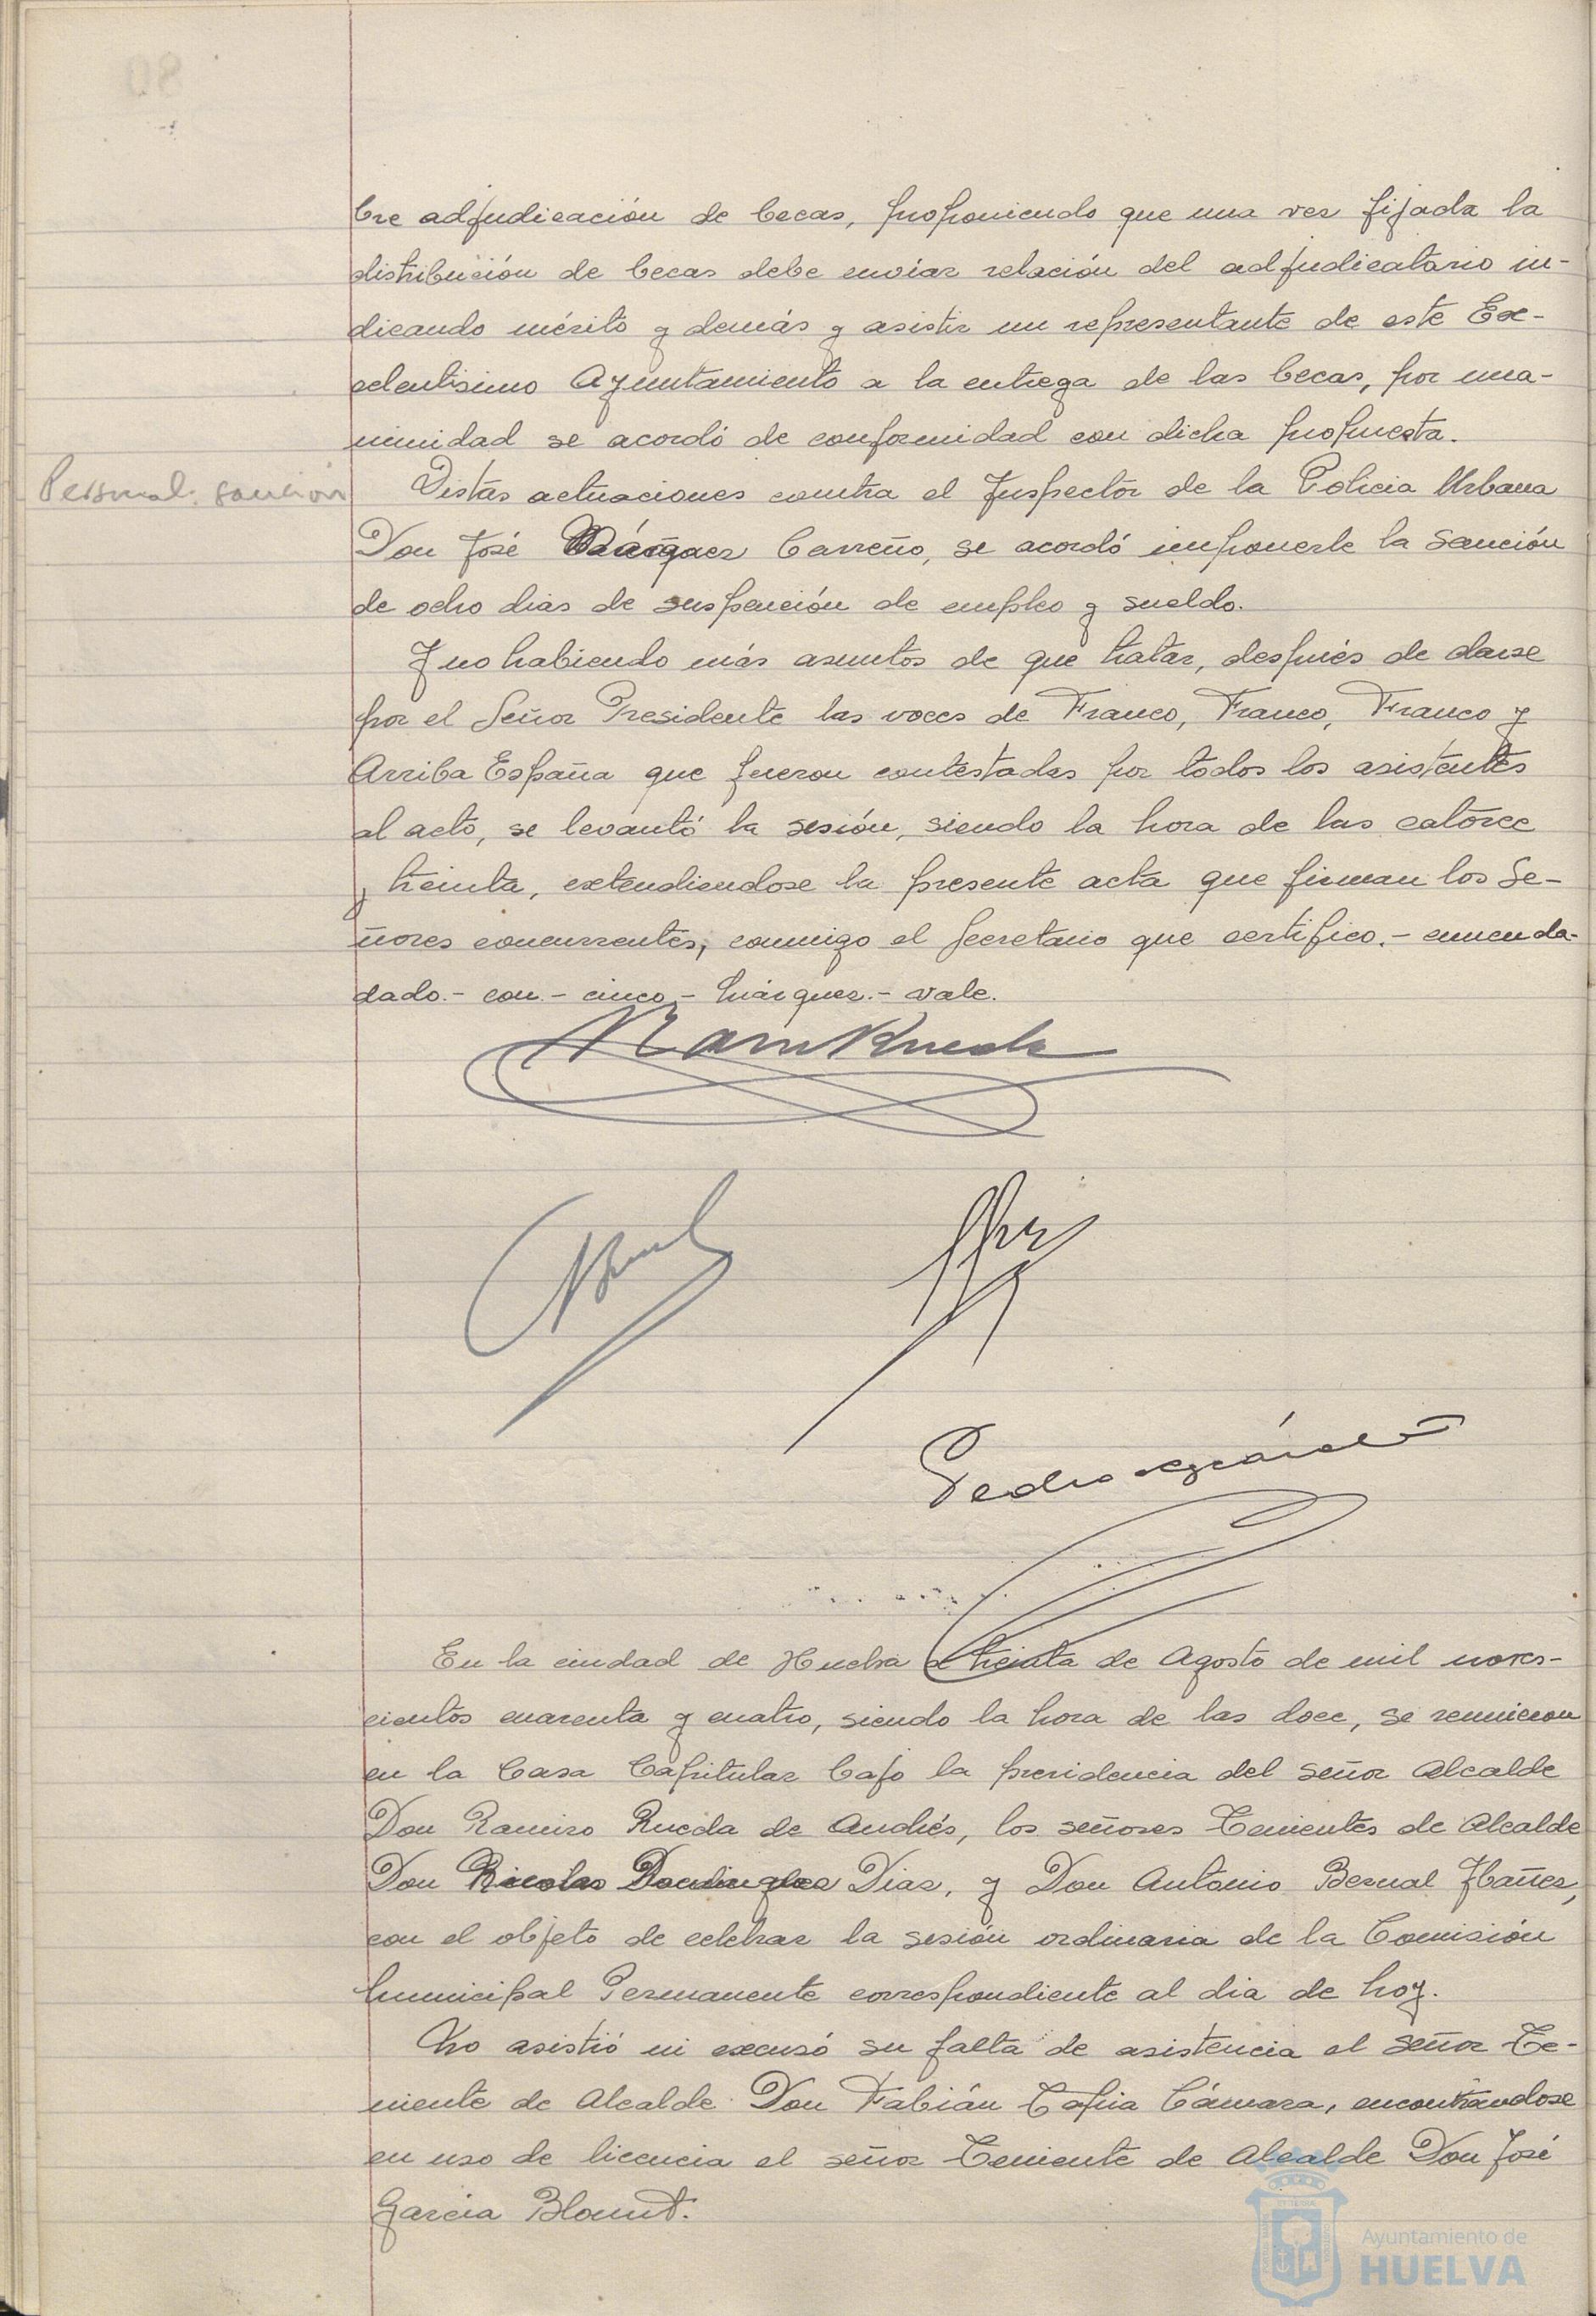 bre adjudicación de becas, proponiendo que una vez fijada la
distribución de becas debe enviar relación del adjudicatario in-
dicando mérito y demás y asistir un representante de este Ex-
celentisimo Ayuntamiento a la entrega de las becas, por una-
nimidad se acordó de conformidad con dicha propuesta.
Personal. sanción
Vistas actuaciones contra el Inspector de la Policia Urbana
Don José Márquez Carreño, se acordó imponerle la sanción
de ocho dias de suspención de empleo y sueldo.
Y no habiendo más asuntos de que tratar, después de darse
por el Señor Presidente las voces de Franco, Franco, Franco y
Arriba España que fueron contestadas por todos los asistentes
al acto, se levantó la sesión, siendo la hora de las catorce
y treinta, extendiendose la presente acta que firman los Se-
ñores concurrentes, conmigo el Secretario que certifico.- enmenda-
dado.- con.- cinco.- Márquez.- vale.
Ram Rueda
Pedro
En la ciudad de Huelva a treinta de Agosto de mil noves-
cientos cuarenta y cuatro, siendo la hora de las doce, se reunieron
en la Casa Capitular bajo la presidencia del señor Alcalde
Don Ramiro Rueda de Andrés, los señores Tenientes de Alcalde
Don Nicolas Dominguez Diaz, y Don Antonio Bernal Ibañez,
con el objeto de celebrar la sesión ordinaria de la Comisión
Municipal Permanente correspondiente al dia de hoy.
No asistió ni excusó su falta de asistencia el señor Te-
niente de Alcalde Don Fabián Tapia Cámara, encontrandose
en uso de licencia el señor Teniente de Alcalde Don José
Garcia Blount.
Ayuntamiento de
HUELVA